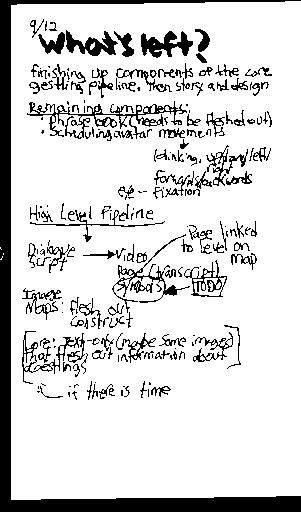 9/12
What's left?
finishing up components of the core
gestling pipeline, then story and design
Remaining components:
• Phrasebook (needs to be fleshed out)
• scheduling avatar movements
(blinking, up/down/left/
right
forwards/backwards
eye - fixation
High Level Pipeline
Page linked
to level on
map
Dialogue
script
Video
page (transcript)
Symbols
TODO
Image
Maps: flesh out
construct
Lore: text-only (maybe some images)
that flesh out information about
gestlings
if there is time